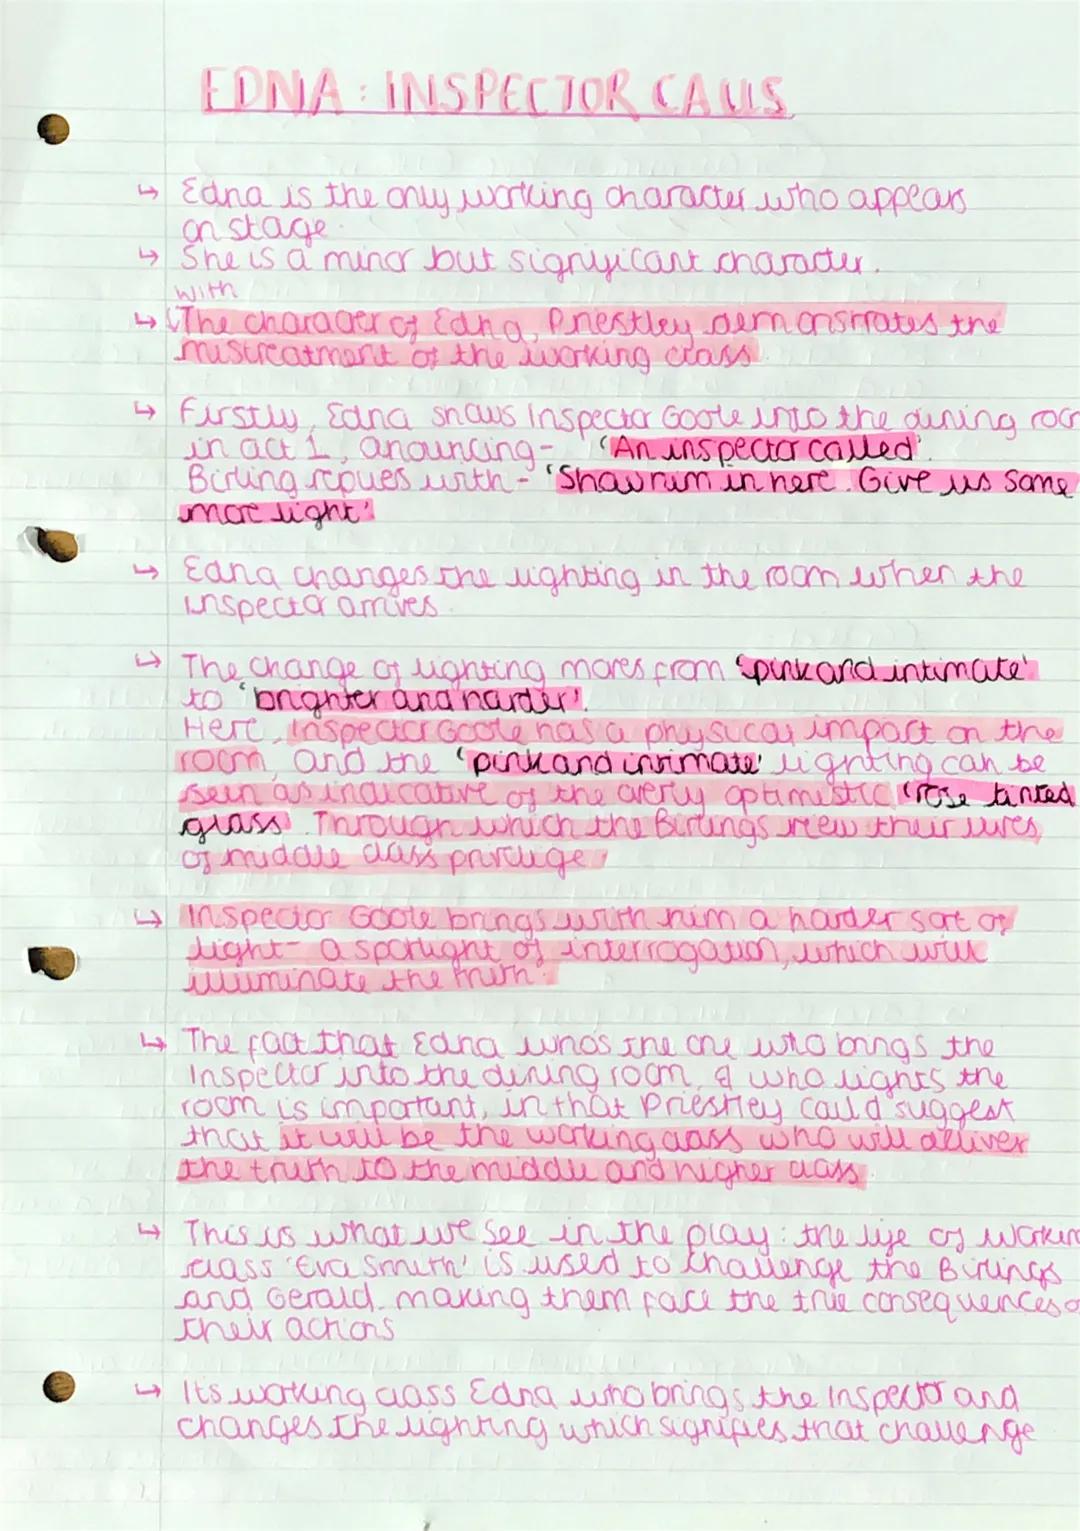 EDNA : INSPECTOR CALLS
↳ Edna is the only working character who appears
on stage.
↳ She is a minor but significant character.
with
↳ The character of Edna, Priestley demonstrates the
mistreatment of the working class
↳ Firstly, Edna shows Inspector Goole into the dining roo
in act 1, anouncing - 'An inspector called'.
Birling replies with - 'Show him in here. Give us some
more light'
↳ Edna changes the lighting in the room when the
inspector arrives.
↳ The change of lighting moves from 'pink and intimate'
to 'brighter and harder'.
Here, Inspector Goole has a physical impact on the
room, and the 'pink and intimate' lighting can be
seen as indicative of the overly optimistic 'rose tinted
glass'. Through which the Birlings view their lives
of middle class privilige
↳ Inspector Goole brings with him a harder sort of
light - a spotlight of interrogation, which will
illuminate the truth.
↳ The fact that Edna who's the one who brings the
Inspector into the dining room, & who lights the
room is important, in that Priestley could suggest
that it will be the working class who will deliver
the truth to the middle and higher class.
↳ This is what we see in the play: the life of workin
class 'Eva Smith' is used to challenge the Birlings
and Gerald, making them face the true consequences o
their actions
↳ Its working class Edna who brings the Inspector and
changes the lighting which signifies that challenge